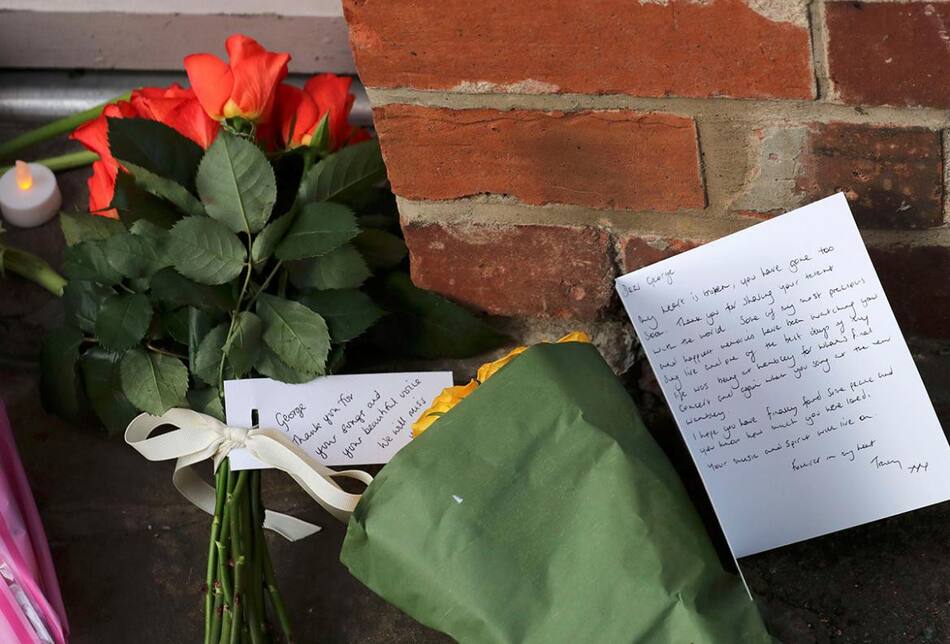 George
Thank you for
your songs and
your beautiful voice
We will miss
Dear George
My heart is broken, you have gone too
soon. Thank you for sharing your talent
with the world. Some of my most precious
and happier memories have been watching you
Sing live and one of the best days of my
life was being at Wembley for Wham's Final
Concert and again when you sang at the new
Wembley.
I hope you have finally found some peace and
you know how much you were loved.
Your music and spirit will live on.
Forever in my heart
Tracey xxx